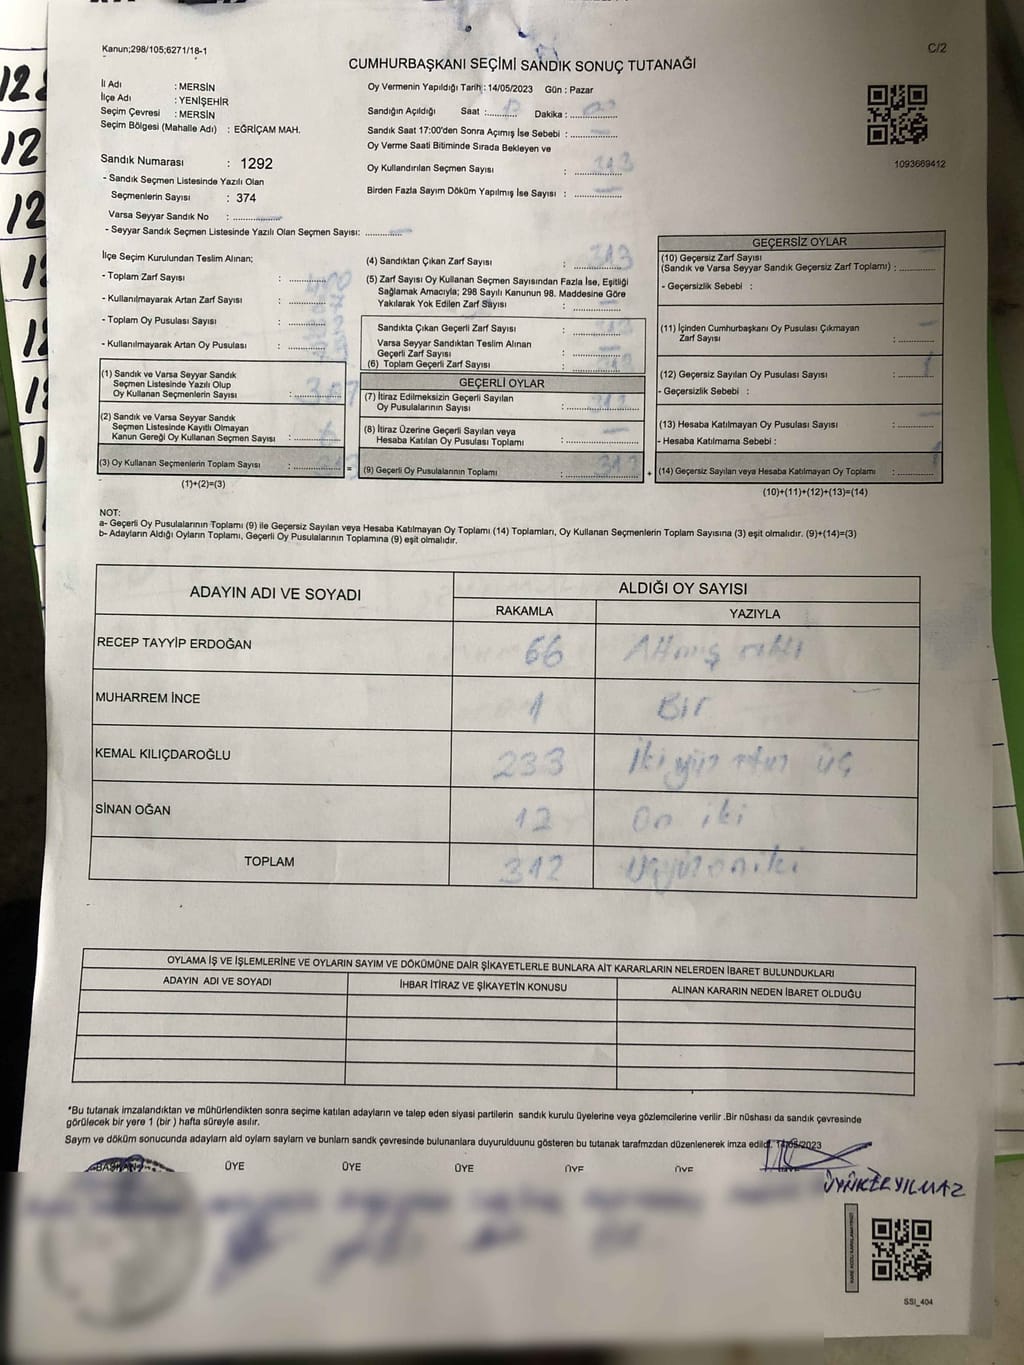 Kanun;298/105;6271/18-1
C/2
CUMHURBAŞKANI SEÇİMİ SANDIK SONUÇ TUTANAĞI
İl Adı : MERSİN
İlçe Adı : YENİŞEHİR
Seçim Çevresi : MERSİN
Seçim Bölgesi (Mahalle Adı) : EĞRİÇAM MAH.
Oy Vermenin Yapıldığı Tarih : 14/05/2023 Gün : Pazar
Sandığın Açıldığı Saat :......... Dakika :.............
Sandık Saat 17:00'den Sonra Açımış İse Sebebi :.............
Oy Verme Saati Bitiminde Sırada Bekleyen ve
Oy Kullandırılan Seçmen Sayısı : 313
Birden Fazla Sayım Döküm Yapılmış İse Sayısı : —
1093669412
Sandık Numarası : 1292
- Sandık Seçmen Listesinde Yazılı Olan
Seçmenlerin Sayısı : 374
Varsa Seyyar Sandık No : —
- Seyyar Sandık Seçmen Listesinde Yazılı Olan Seçmen Sayısı: —
İlçe Seçim Kurulundan Teslim Alınan;
- Toplam Zarf Sayısı :
- Kullanılmayarak Artan Zarf Sayısı :
- Toplam Oy Pusulası Sayısı :
- Kullanılmayarak Artan Oy Pusulası :
(1) Sandık ve Varsa Seyyar Sandık
Seçmen Listesinde Yazılı Olup
Oy Kullanan Seçmenlerin Sayısı : 307
(2) Sandık ve Varsa Seyyar Sandık
Seçmen Listesinde Kayıtlı Olmayan
Kanun Gereği Oy Kullanan Seçmen Sayısı : 6
(3) Oy Kullanan Seçmenlerin Toplam Sayısı : 313 =
(1)+(2)=(3)
(4) Sandıktan Çıkan Zarf Sayısı : 313
(5) Zarf Sayısı Oy Kullanan Seçmen Sayısından Fazla İse, Eşitliği
Sağlamak Amacıyla; 298 Sayılı Kanunun 98. Maddesine Göre
Yakılarak Yok Edilen Zarf Sayısı : —
Sandıkta Çıkan Geçerli Zarf Sayısı : 313
Varsa Seyyar Sandıktan Teslim Alınan
Geçerli Zarf Sayısı : —
(6) Toplam Geçerli Zarf Sayısı : 313
GEÇERLİ OYLAR
(7) İtiraz Edilmeksizin Geçerli Sayılan
Oy Pusulalarının Sayısı : 312
(8) İtiraz Üzerine Geçerli Sayılan veya
Hesaba Katılan Oy Pusulası Toplamı : —
(9) Geçerli Oy Pusulalarının Toplamı : 312 +
GEÇERSİZ OYLAR
(10) Geçersiz Zarf Sayısı
(Sandık ve Varsa Seyyar Sandık Geçersiz Zarf Toplamı) : —
- Geçersizlik Sebebi :
(11) İçinden Cumhurbaşkanı Oy Pusulası Çıkmayan
Zarf Sayısı : —
(12) Geçersiz Sayılan Oy Pusulası Sayısı : 1
- Geçersizlik Sebebi :
(13) Hesaba Katılmayan Oy Pusulası Sayısı : —
- Hesaba Katılmama Sebebi :
(14) Geçersiz Sayılan veya Hesaba Katılmayan Oy Toplamı : 1
(10)+(11)+(12)+(13)=(14)
NOT:
a- Geçerli Oy Pusulalarının Toplamı (9) ile Geçersiz Sayılan veya Hesaba Katılmayan Oy Toplamı (14) Toplamları, Oy Kullanan Seçmenlerin Toplam Sayısına (3) eşit olmalıdır. (9)+(14)=(3)
b- Adayların Aldığı Oyların Toplamı, Geçerli Oy Pusulalarının Toplamına (9) eşit olmalıdır.
ADAYIN ADI VE SOYADI
ALDIĞI OY SAYISI
RAKAMLA YAZIYLA
RECEP TAYYİP ERDOĞAN 66 Altmış altı
MUHARREM İNCE 1 Bir
KEMAL KILIÇDAROĞLU 233 İki yüz otuz üç
SİNAN OĞAN 12 On iki
TOPLAM 312 Üçyüzoniki
OYLAMA İŞ VE İŞLEMLERİNE VE OYLARIN SAYIM VE DÖKÜMÜNE DAİR ŞİKAYETLERLE BUNLARA AİT KARARLARIN NELERDEN İBARET BULUNDUKLARI
ADAYIN ADI VE SOYADI İHBAR İTİRAZ VE ŞİKAYETİN KONUSU ALINAN KARARIN NEDEN İBARET OLDUĞU
*Bu tutanak imzalandıktan ve mühürlendikten sonra seçime katılan adayların ve talep eden siyasi partilerin sandık kurulu üyelerine veya gözlemcilerine verilir .Bir nüshası da sandık çevresinde
görülecek bir yere 1 (bir ) hafta süreyle asılır.
Sayım ve döküm sonucunda adaylarn ald oylarn saylarn ve bunlarn sandk çevresinde bulunanlara duyurulduunu gösteren bu tutanak tarafmzdan düzenlenerek imza edild. 14/05/2023
BAŞKAN ÜYE ÜYE ÜYE ÜYE ÜYE
YILMAZ
SSI_404